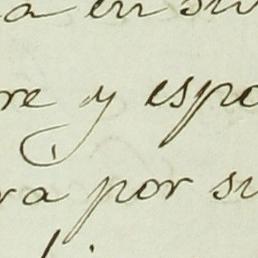 a en su
re y espo
ra por su